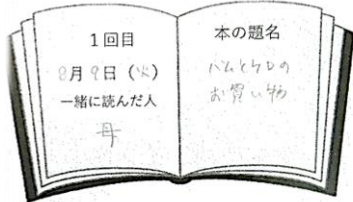 1回目
8月9日(火)
一緒に読んだ人
母
本の題名
バムとケロの
お買い物